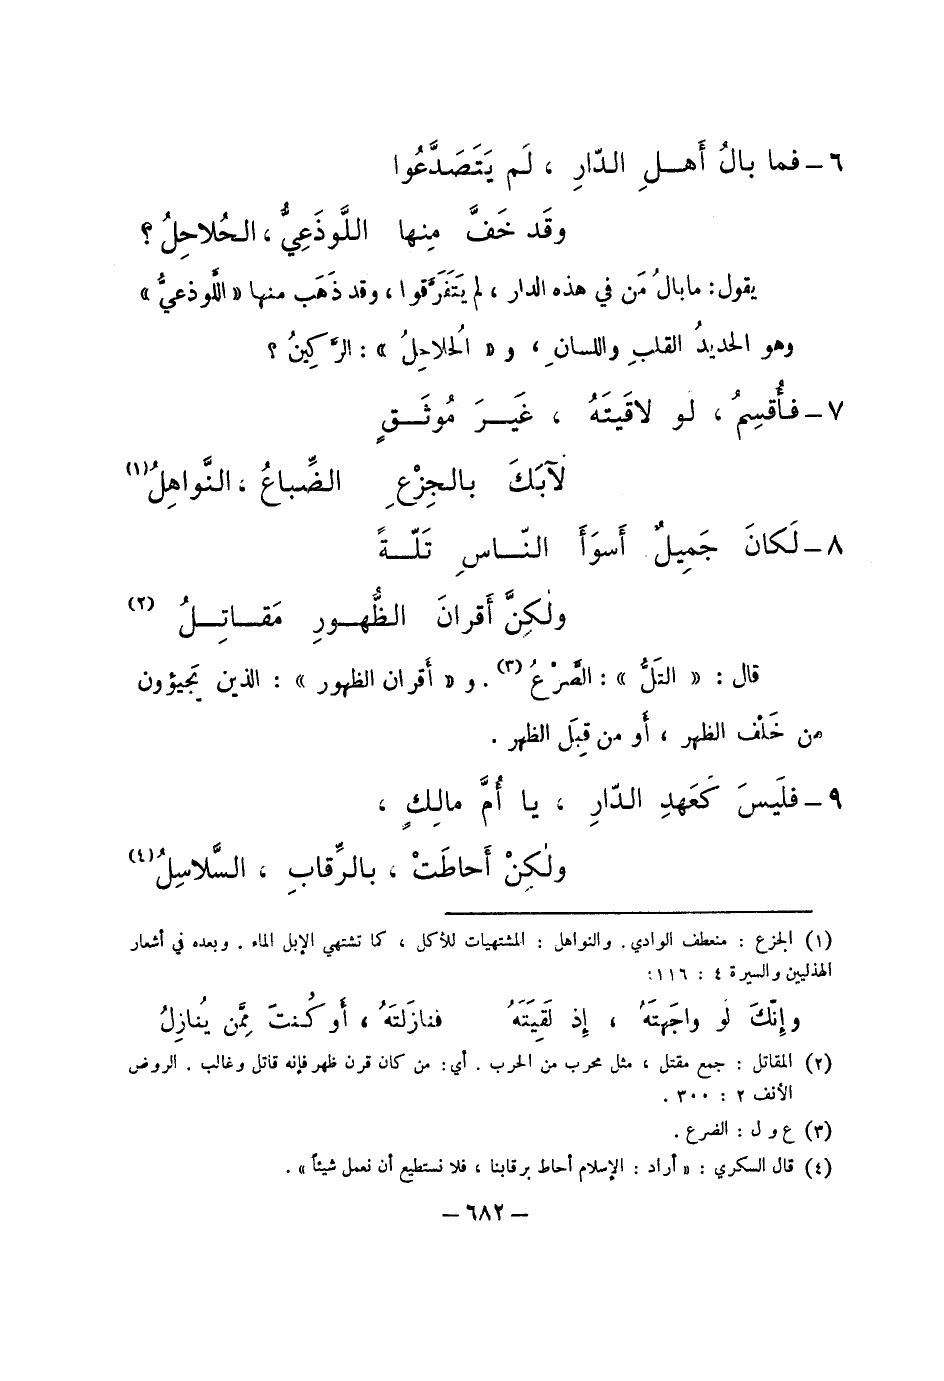 ٦ – فما بالُ أَهــلِ الدّارِ ، لَم يَتَصَدَّعُوا
وقَد خَفَّ مِنها اللَّوذَعِيُّ ، الحُلاحِلُ ؟
يقول : ما بالُ مَن في هذه الدار ، لم يَتَفَرَّقوا ، وقد ذَهَب منها « اللَّوذعيُّ »
وهو الحديدُ القلبِ واللسانِ ، و « الحُلاحِلُ » : الرَّكِينُ ؟
٧ – فأُقسِمُ ، لو لاقَيتَهُ ، غَيــرَ مُوثَــقٍ
لَآبَكَ بالجِزْعِ الضِّباعُ ، النَّواهِلُ (١)
٨ – لَكانَ جَمِيلٌ أَسوَأَ النّــاسِ تَلّــةً
ولٰكِنَّ أَقرانَ الظُّهــورِ مَقــاتِــلُ (٢)
قال : « التَلُّ » : الصَّرْعُ (٣) . و « أَقران الظهور » : الذين يَجيؤون
من خَلْف الظهر ، أَو من قِبَل الظهر .
٩ – فلَيسَ كَعَهدِ الدّارِ ، يا أُمَّ مالِكٍ ،
ولٰكِنْ أَحاطَتْ ، بالرِّقابِ ، السَّلاسِلُ (٤)
(١) الجزع : منعطف الوادي . والنواهل : المشتهيات للأكل ، كما تشتهي الإبل الماء . وبعده في أشعار
الهذليين والسيرة ٤ : ١١٦ :
وإنّكَ لَو واجَهتَهُ ، إذ لَقِيتَهُ فنازَلتَهُ ، أَو كُنتَ مِمَّن يُنازِلُ
(٢) المقاتل : جمع مقتل ، مثل محرب من الحرب . أي : من كان قرن ظهر فإنه قاتل وغالب . الروض
الأنف ٢ : ٣٠٠ .
(٣) ع و ل : الضرع .
(٤) قال السكري : « أراد : الإسلام أحاط برقابنا ، فلا نستطيع أن نعمل شيئاً » .
– ٦٨٢ –